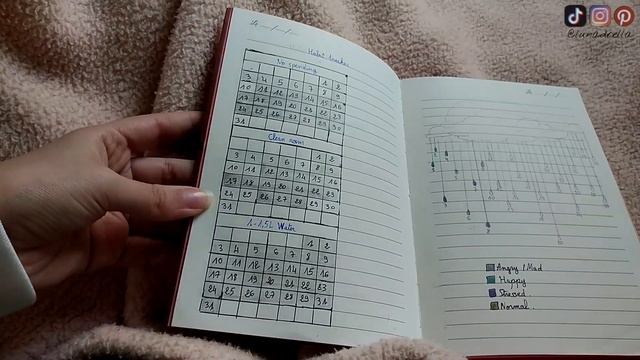 @lunadzella
Habit tracker
No spending
1 2
3 4 5 6 7 8 9
10 11 12 13 14 15 16
17 18 19 20 21 22 23
24 25 26 27 28 29 30
31
Clean room
1 2
3 4 5 6 7 8 9
10 11 12 13 14 15 16
17 18 19 20 21 22 23
24 25 26 27 28 29 30
31
1-1,5L Water
1 2
3 4 5 6 7 8 9
10 11 12 13 14 15 16
17 18 19 20 21 22 23
24 25 26 27 28 29 31
31
Angry / Mad
Happy
Stressed
Normal